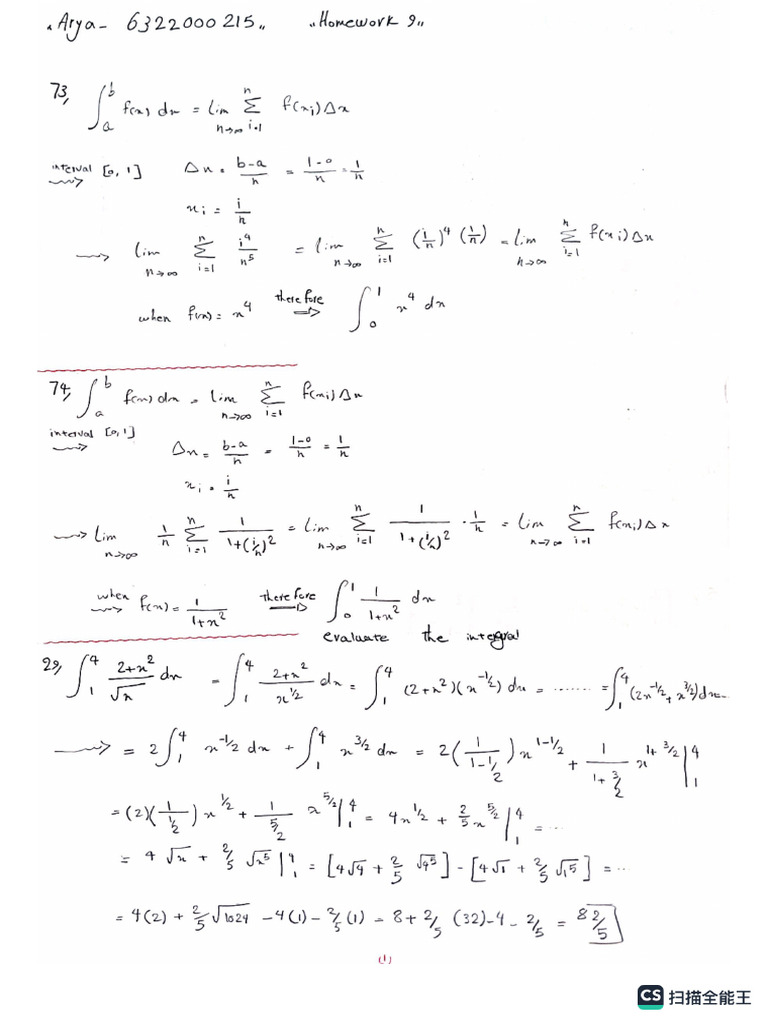 "Arya- 6322000215" "Homework 9"
73, ∫_a^b f(x) dx = lim_{n→∞} Σ_{i=1}^n f(x_i)Δx
interval [0, 1] Δx = b-a/n = 1-0/n = 1/n
x_i = i/n
→ lim_{n→∞} Σ_{i=1}^n i^4/n^5 = lim_{n→∞} Σ_{i=1}^n (i/n)^4 (1/n) = lim_{n→∞} Σ_{i=1}^n f(x_i)Δx
when f(x) = x^4 therefore ⇒ ∫_0^1 x^4 dx
74, ∫_a^b f(x) dx = lim_{n→∞} Σ_{i=1}^n f(x_i)Δx
interval [0, 1]
Δx = b-a/n = 1-0/n = 1/n
x_i = i/n
→ lim_{n→∞} 1/n Σ_{i=1}^n 1/(1+(i/n)^2) = lim_{n→∞} Σ_{i=1}^n 1/(1+(i/n)^2) · 1/n = lim_{n→∞} Σ_{i=1}^n f(x_i)Δx
when → f(x) = 1/(1+x^2) therefore ⇒ ∫_0^1 1/(1+x^2) dx
evaluate the integral
29, ∫_1^4 (2+x^2)/√x dx = ∫_1^4 (2+x^2)/x^{1/2} dx = ∫_1^4 (2+x^2)(x^{-1/2}) dx = ....... = ∫_1^4 (2x^{-1/2} + x^{3/2}) dx...
→ = 2∫_1^4 x^{-1/2} dx + ∫_1^4 x^{3/2} dx = 2(1/(1-1/2)) x^{1-1/2} + 1/(1+3/2) x^{1+3/2} |_1^4
= (2)(1/(1/2)) x^{1/2} + 1/(5/2) x^{5/2} |_1^4 = 4x^{1/2} + 2/5 x^{5/2} |_1^4 = ...
= 4√x + 2/5 √x^5 |_1^4 = [4√4 + 2/5 √4^5] - [4√1 + 2/5 √1^5] = ...
= 4(2) + 2/5 √1024 - 4(1) - 2/5 (1) = 8 + 2/5 (32) - 4 - 2/5 = 82/5
(1)
CS 扫描全能王